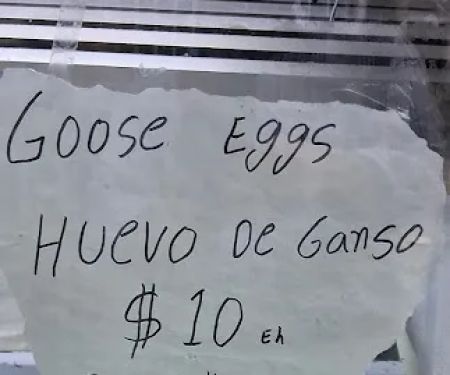 Goose Eggs
Huevo De Ganso
$10 Eh